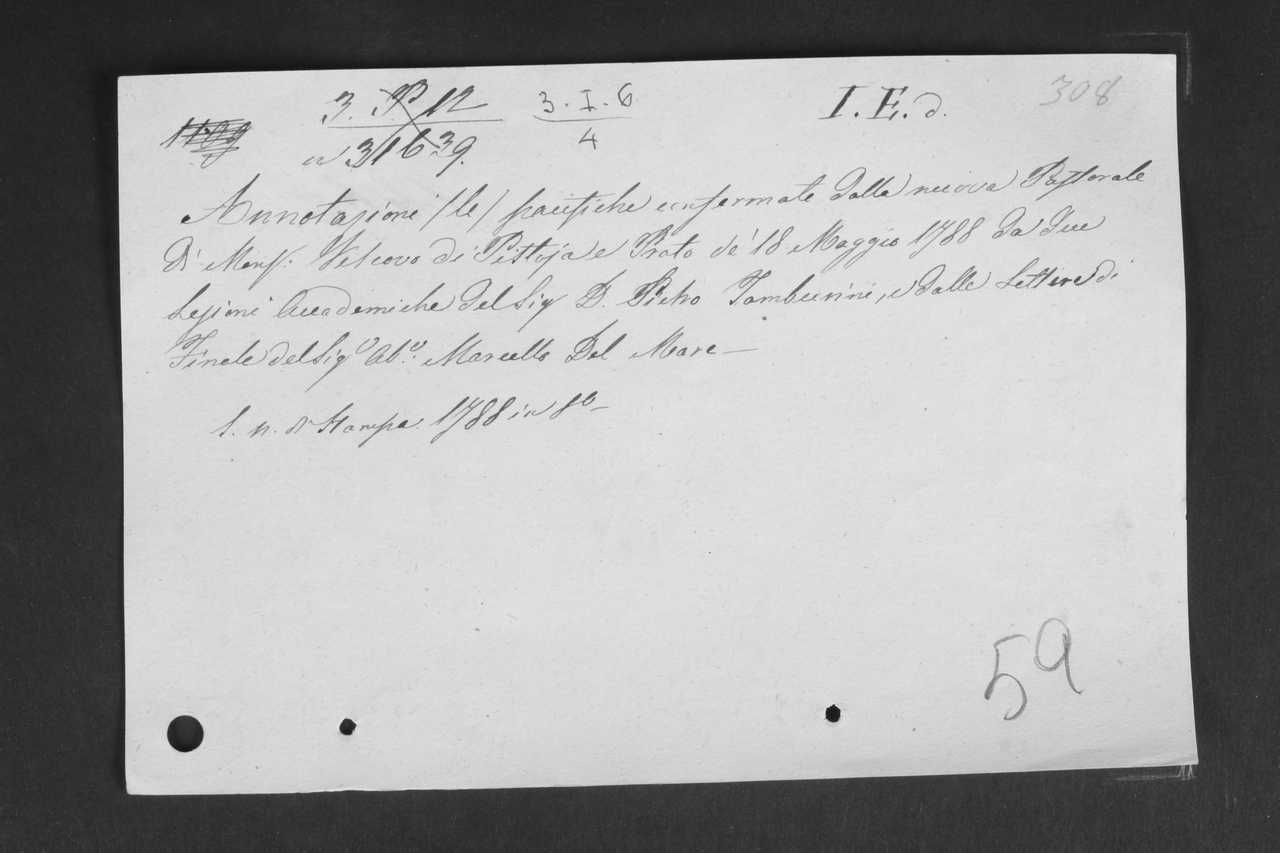 3. P. 12 3. I. 6 I. E. d. 308
in 316.39. 4
Annotazioni (le) pacifiche confermate dalla nuova Pastorale
di Mons. Vescovo di Pistoja e Prato de' 18 Maggio 1788 da due
Lezioni Accademiche del Sig D. Pietro Tamburini, e dalle Lettere di
Finale del Sigr Abe. Marcello Del Mare—
S. n. di Stampa. 1788 in 8o—
59